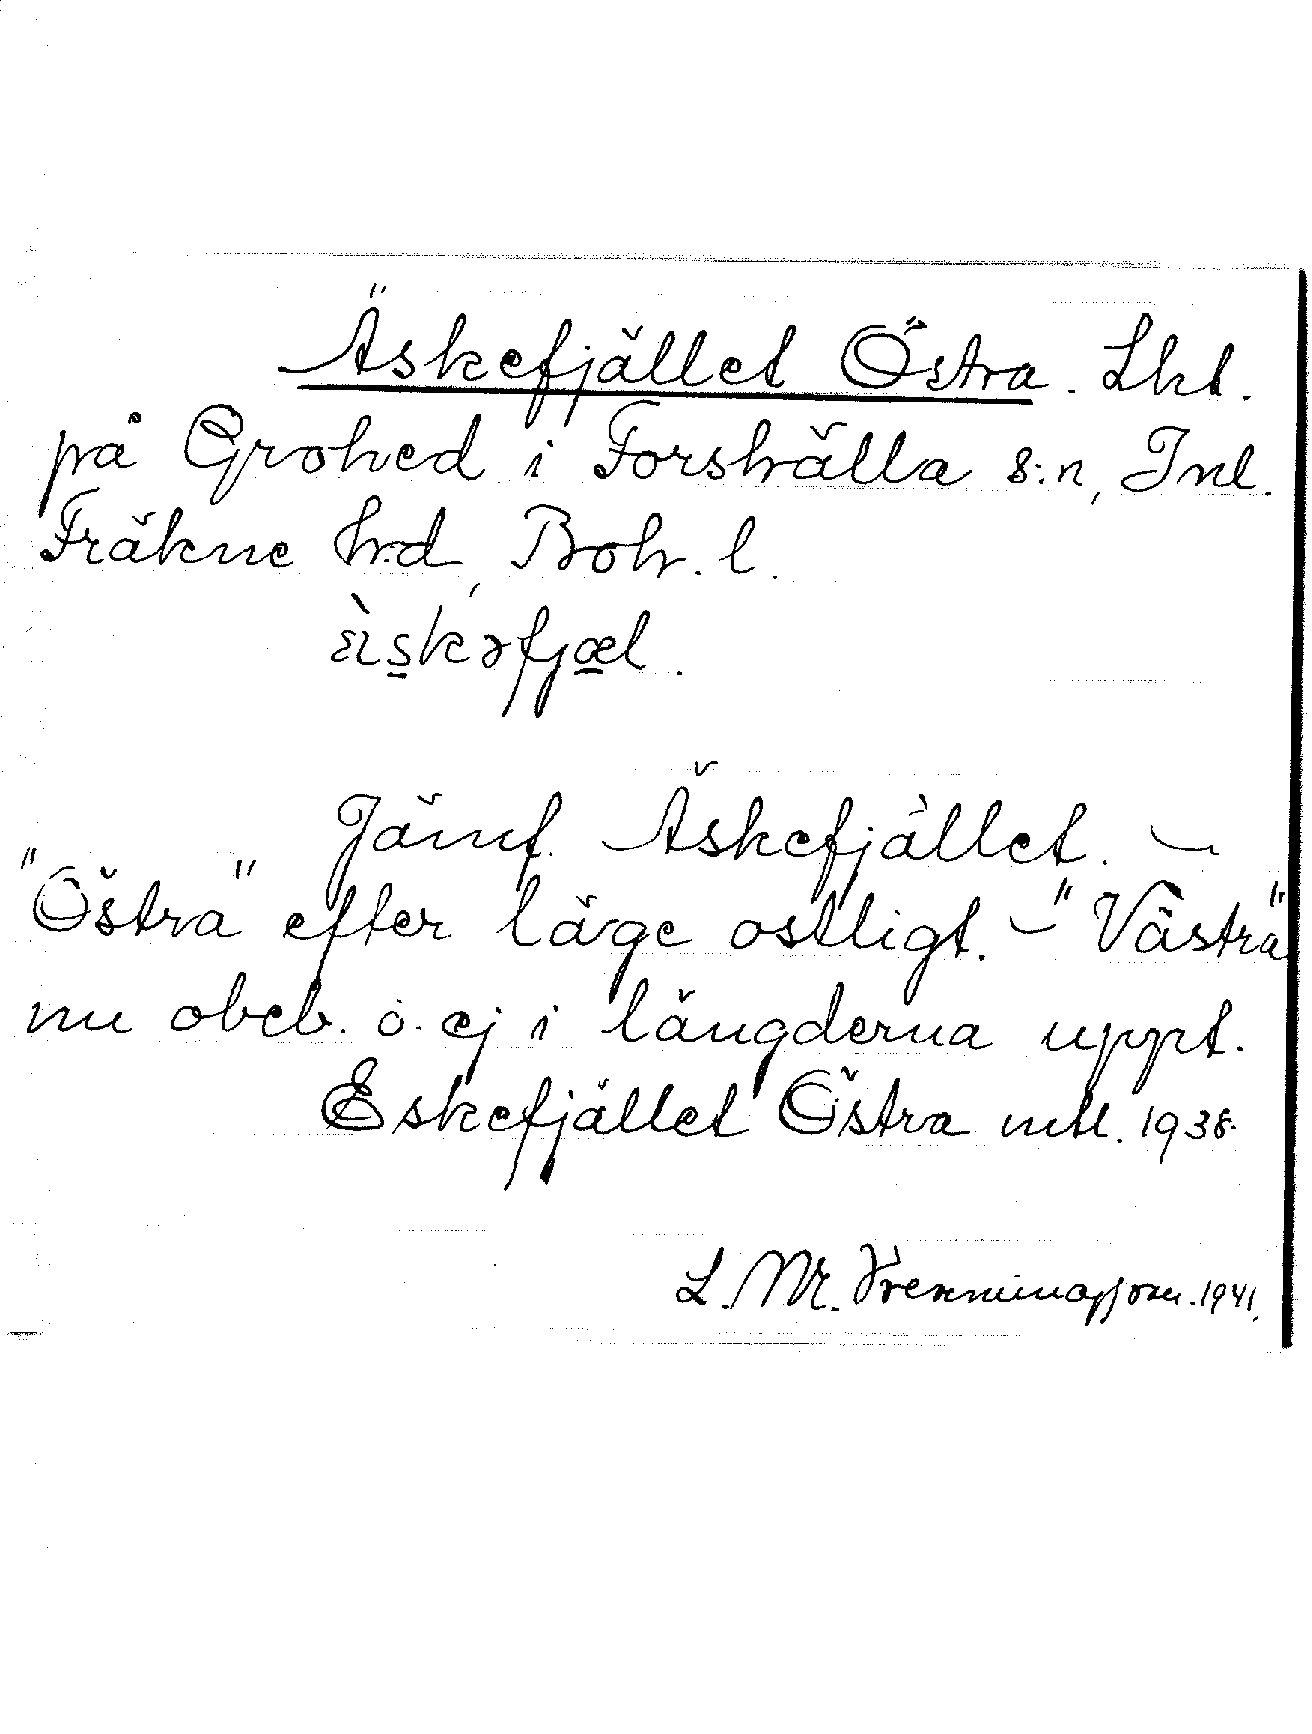 Äskefjället Östra. Lht.
på Grohed i Forshälla s:n, Inl.
Fräkne hd, Boh. l.
Jämf. Äskefjället. –
"Östra" efter läge ostligt. – "Västra"
nu obeb. o. ej i längderna uppt.
Eskefjället Östra mtl. 1938
L. M. 1941.